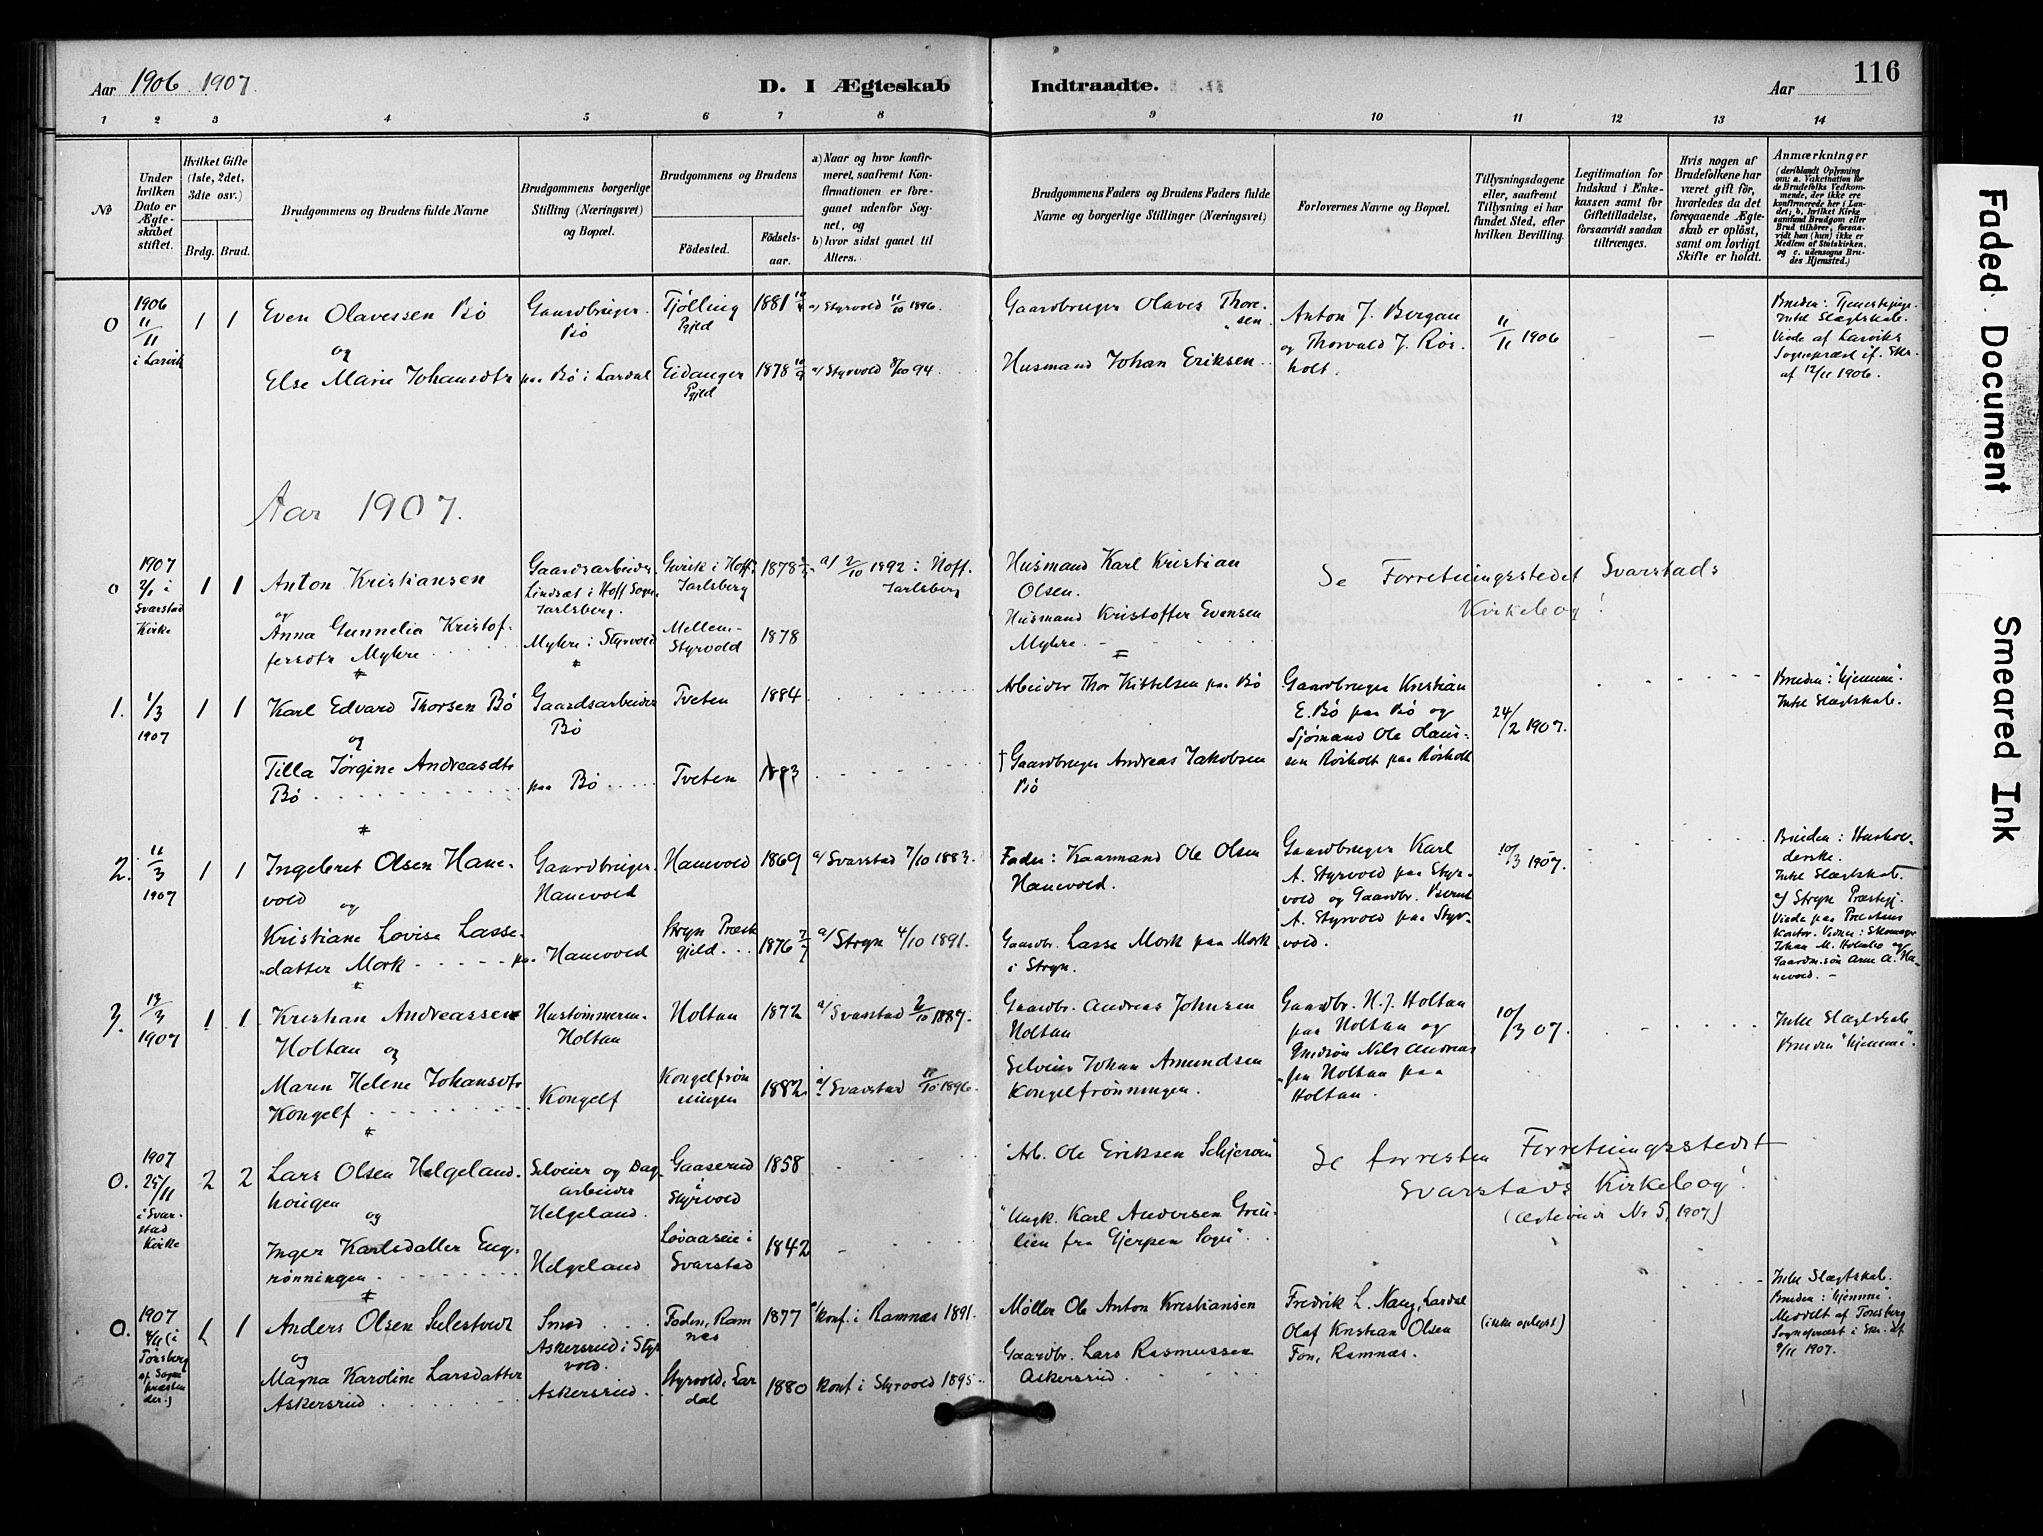 Aar 1906 1907
D. I Ægteskab Indtraadte.
Aar
116
1 2 3 4 5 6 7 8 9 10 11 12 13 14
№
Under hvilken Dato er Ægteskabet stiftet.
Hvilket Gifte (1ste, 2det, 3die osv.)
Brdg. Brud.
Brudgommens og Brudens fulde Navne
Brudgommens borgerlige Stilling (Næringsvei) og Bopæl.
Brudgommens og Brudens
Fødested.
Fødsels-aar.
a) Naar og hvor konfirmeret, saafremt Konfirmationen er foregaaet udenfor Sognet, og
b) hvor sidst gaaet til Alters.
Brudgommens Faders og Brudens Faders fulde Navne og borgerlige Stillinger (Næringsvei)
Forlovernes Navne og Bopæl.
Tillysningsdagene eller, saafremt Tillysning ei har fundet Sted, efter hvilken Bevilling.
Legitimation for Indskud i Enkekassen samt for Giftetilladelse, forsaavidt saadan tiltrænges.
Hvis nogen af Brudefolkene har været gift før, hvorledes da det foregaaende Ægteskab er opløst, samt om lovligt Skifte er holdt.
Anmærkninger
(deriblandt Oplysning om: a. Vakcination for de Brudefolks Vedkommende, der ikke ere konfirmerede her i Landet; b. hvilket Kirkesamfund Brudgom eller Brud tilhører, forsaavidt han (hun) ikke er Medlem af Statskirken, og c. udensogns Brudes Hjemsted.)
0 1906 11/11 i Larvik 1 1
Even Olavessen Bø
og
Else Marie Johansdtr
Gaardbruger Bø
paa Bø i Lardal
Tjølling Pgjeld 1881
Eidanger Pgjeld 1878
a/ Styrvold 11/10 1896.
a/ Styrvold 8/10 94.
Gaardbruger Olaves Thoresen
Husmand Johan Eriksen
Anton J. Bergan
og Thorvald J. Røsholt.
11/11 1906
Bruden: Tjenestepige.
Intet Slægtskab.
Viede af Larviks
Sognepræst if. Skr.
af 12/11 1906.
Aar 1907.
0 1907 i Svarstad Kirke 1 1
Anton Kristiansen
og
Anna Gunnelia Kristoffersdtr Myhre
Gaardsarbeider Lindsæt i Hoff Sogn Jarlsberg.
Myhre i Styrvold
i Hoff Jarlsberg 1878
Mellem-Styrvold 1878
a/ 2/10 1892 i Hoff. Jarlsberg
Husmand Karl Kristian Olsen.
Husmand Kristoffer Evensen Myhre.
Se Forretningsstedet Svarstads Kirkebog!
1. 1/3 1907 1 1
Karl Edvard Thorsen Bø
og
Tilla Jørgine Andreasdtr Bø
Gaardsarbeider Bø
paa Bø
Tveten 1884
Tveten 1883
Arbeider Thor Kittelsen paa Bø
† Gaardbruger Andreas Jakobsen Bø
Gaardbruger Kristian
E. Bø paa Bø og
Sjømand Ole Olaussen Røsholt paa Røsholt
24/2 1907.
Bruden: "hjemme".
Intet Slægtskab.
2. 11/3 1907 1 1
Ingebret Olsen Hanevold
og
Kristiane Lovise Lassedatter Mork
Gaardbruger Hanevold
paa Hanevold
Hanevold 1869
Stryn Præstegjeld 1876
a/ Svarstad 7/10 1883.
a/ Stryn 4/10 1891.
Fader: Kaarmand Ole Olsen Hanevold.
Gaardbr. Lasse Mork paa Mork i Stryn.
Gaardbruger Karl
A. Styrvold paa Styrvold og Gaardbr. Bernt
A. Styrvold paa Styrvold.
10/3 1907.
Bruden: Husholderske.
Intet Slægtskab.
af Stryn Præstgj.
Viede paa Præstens
Kontor. Vidner: Skomager
Johan M. Holmbo og
Gaardm.søn Arne A. Hanevold.
3. 13/3 1907 1 1
Kristian Andreassen Holtan og
Maren Helene Johansdtr Kongelf
Hustømmerm. Holtan
Kongelf
Holtan 1872
Kongelfrønningen 1882
a/ Svarstad 2/10 1887.
a/ Svarstad 11/10 1896.
Gaardbr. Andreas Johnsen Holtan
Selveier Johan Amundsen Kongelfrønningen.
Gaardbr. H. J. Holtan
paa Holtan og
Gmdsøn Nils Andreassen Holtan paa
Holtan.
10/3 07.
Intet Slægtskab
Bruden "hjemme".
0. 1907 25/11 i Svarstad Kirke 2 2
Lars Olsen Helgelandhougen
og
Inger Karlsdatter Engrønningen
Selveier og Dagarbeider Helgeland.
Helgeland
Gaaserud i Styrvold 1858
Løvaaseie i Svarstad 1842
Arb. Ole Eriksen
Ungk. Karl Andersen
lien fra Gjerpen Sogn".
Se forresten Forretningsstedet
Svarstads Kirkebog!
(Ægteviede Nr 5, 1907)
0. 1907 (i Tønsberg af Sognepræsten der.) 1 1
Anders Olsen Sulestvedt
og
Magna Karoline Larsdatter Askersrud
Smed Askersrud i Styrvold.
Askersrud.
Foden, Ramnæs 1877
Styrvold, Lardal 1880
Konf. i Ramnæs 1891.
Konf. i Styrvold 1895.
Møller Ole Anton Kristiansen
Gaardbr. Lars Rasmussen Askersrud.
Fredrik L. Næss, Lardal
Olaf Kristian Olsen
Fon, Ramnæs.
(ikke oplyst)
Intet Slægtskab.
Bruden: "hjemme".
Meddelt af Tønsberg
Sognepræst i Skr. af
9/11 1907.
Faded Document
Smeared Ink